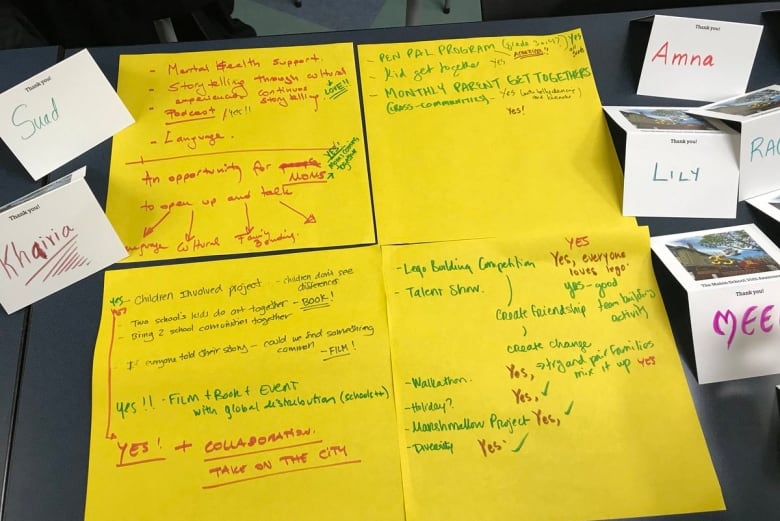 Thank you!
Suad
Thank you!
Khairia
- Mental Health Support.
- Storytelling through cultural
experiences continue
storytelling
+ LOVE!!
- Podcast / Yes!!
- Language.
An opportunity for MOMS
YES!
Moms coming
together
to open up and talk
Language Cultural Family
Bonding.
- PEN PAL PROGRAM (Grade 3 or 4?) Yes
- Kid get together Yes,
AMAZING!!
- MONTHLY PARENT GET TOGETHERS
(CROSS-COMMUNITIES) - Yes
Yes!
Thank you!
Amna
Thank you!
LILY
Thank you!
RA
Thank you!
MEE
yes - Children Involved project - children don't see
differences
Yes
- Two school's kids do art together - BOOK!
- Bring 2 school communities together
- If everyone told their story - could we find something
common - FILM!
yes!! - FILM + Book + EVENT
with global distribution (schools ++)
YES! + COLLABORATION.
TAKE ON THE CITY
- Lego Building Competition
YES
Yes, everyone
loves lego.
- Talent Show.
yes - good
team building
activity
create friendship
create change
→ try and pair families
mix it up yes
- Walkathon. Yes,
- Holiday? Yes, ✓
- Marshmellow Project Yes, ✓
- Diversity Yes ✓